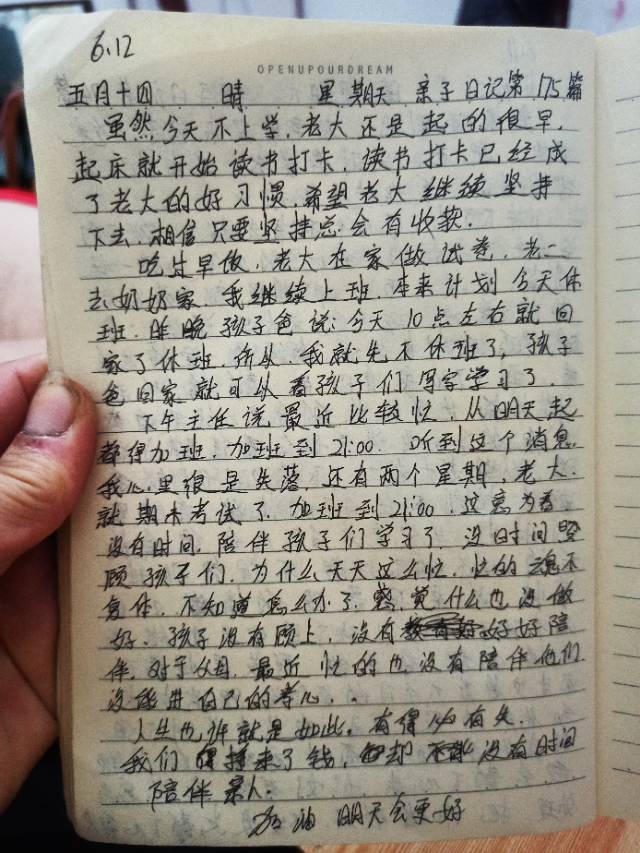 6.12
OPENUPOURDREAM
五月十四 晴 星期天 亲子日记第175篇
虽然今天不上学,老大还是起的很早,
起床就开始读书打卡,读书打卡已经成
了老大的好习惯,希望老大继续坚持
下去,相信只要坚持总会有收获.
吃过早饭,老大在家做试卷,老二
去奶奶家,我继续上班,本来计划今天休
班,昨晚孩子爸说:今天10点左右就回
家了休班,所以,我就先不休班了,孩子
爸回家就可以看孩子们写字学习了.
下午主任说最近比较忙,从明天起
都得加班,加班到21:00 听到这个消息,
我心里很是失落,还有两个星期,老大
就期末考试了,加班到21:00,这意为着
没有时间,陪伴孩子们学习了,没时间照
顾孩子们,为什么天天这么忙,忙的魂不
复体,不知道怎么办了,感觉什么也没做
好,孩子没有顾上,没有好好陪
伴,对于父母,最近忙的也没有陪伴他们
没能进自己的孝心..
人生也许就是如此,有得必有失.
我们得挣来了钱,却没有时间
陪伴亲人.
加油 明天会更好